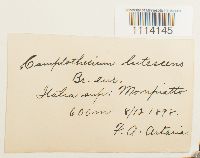 1114145
Camptothecium lutescens
Br. eur.
Italia sup: Mompiatto
600m 8/12 1898.
F. A. Artaria